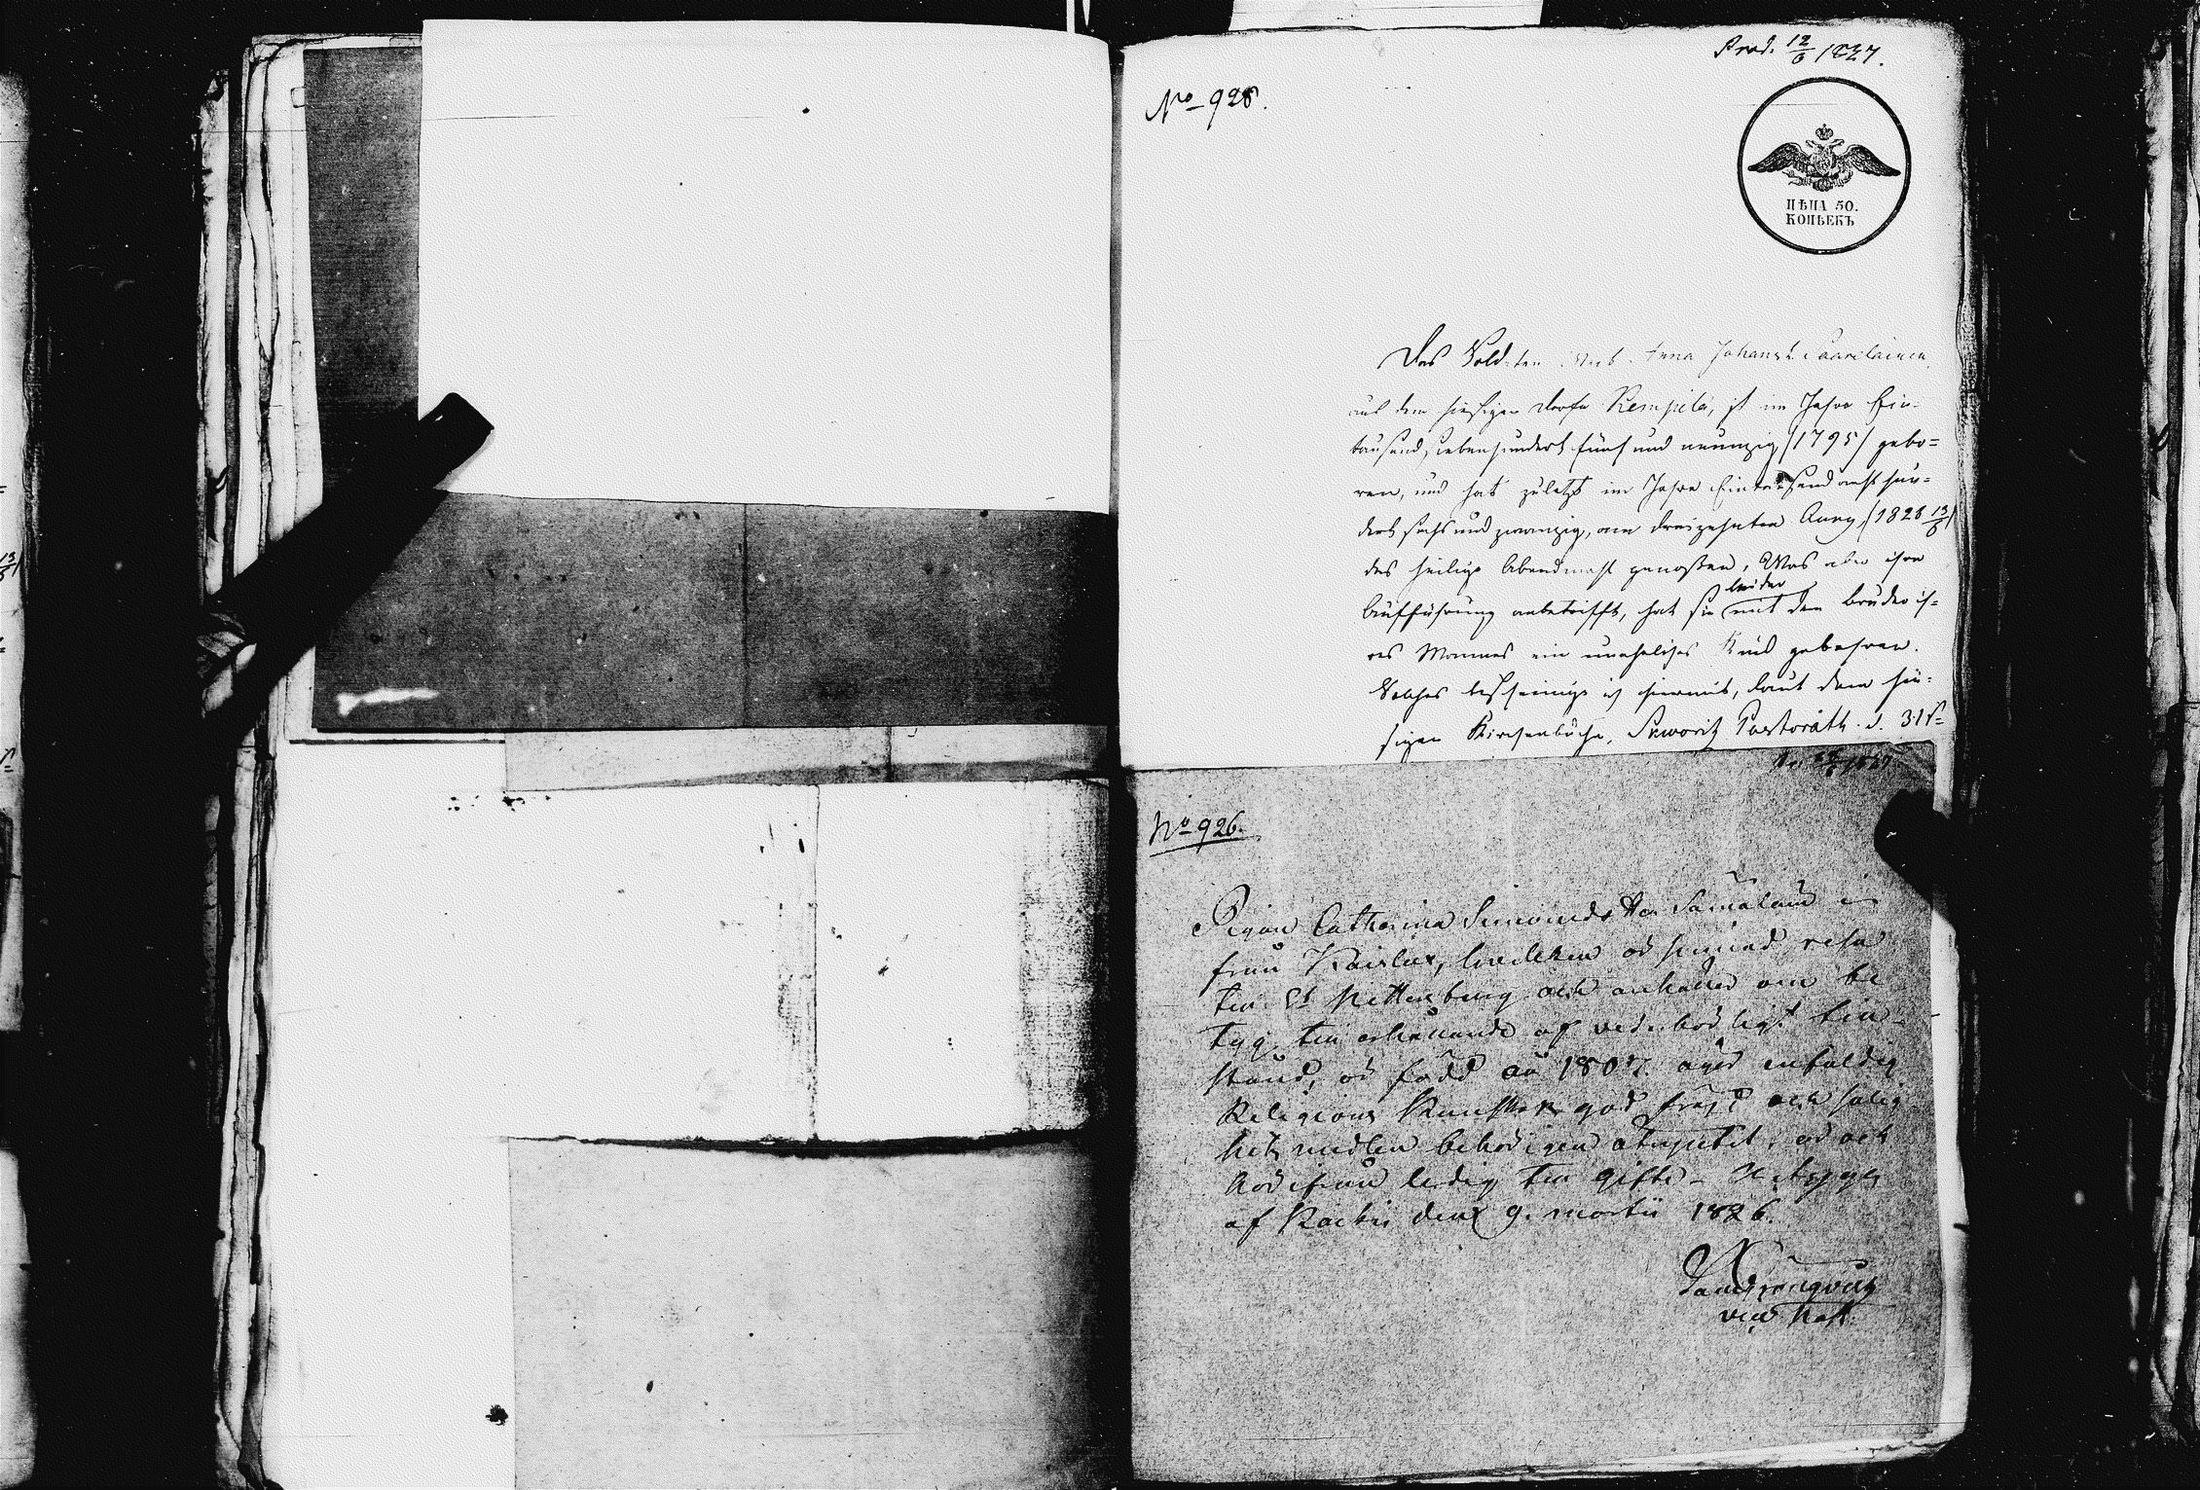 Prod. 12/6 1827.
No 928.
ЦѢНА 50.
КОПѢЕКЪ
Das Soldaten Weib Anna Johanst. Saarelainen,
aus dem hiesigen Dorfe Rempilä, ist im Jahre Ein-
tausend siebenhundert fünf und neunzig /1795/ gebo=
ren, und hat zuletzt im Jahre Eintausend acht hun-
dert sechs und zwanzig, am dreizehnten Aug. /1826 13/8/
das heilige Abendmahl genoßen. Was aber ihre
Aufführung anbetrifft, hat sie leider mit dem Bruder ih=
res Mannes ein uneheliches Kind gebohren.
Solches bescheinige ich hiermit, laut dem hie=
sigen Kirchenbuche, Pastorath. d. 31
No 926.
Pigan Catharina Simonds dotter
från, hvilken är sinnad resa
till St Pettersburg och anhåller om be
tyg till erhållande af vederbörligt
stånd, är född år 1807. äger enfaldig
Religions Kunskap god frejd och salig
hets medlen behörigen åtnjutit, är och
härifrån ledig till gifte
af den 9. martii 1826.
vice Past.